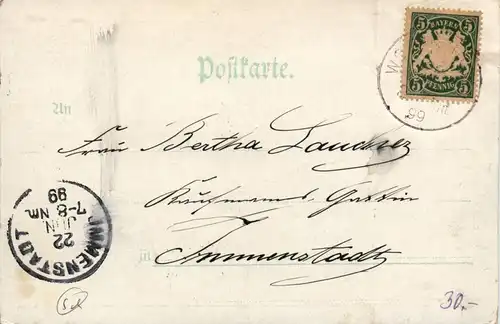 5 BAYERN 5
5 PFENNIG 5
W
99
Postkarte.
An
Frau Bertha
Kaufmanns Gattin
in Immenstadt
IMMENSTADT
22
JUN.
7-8 Nm.
99
30.-